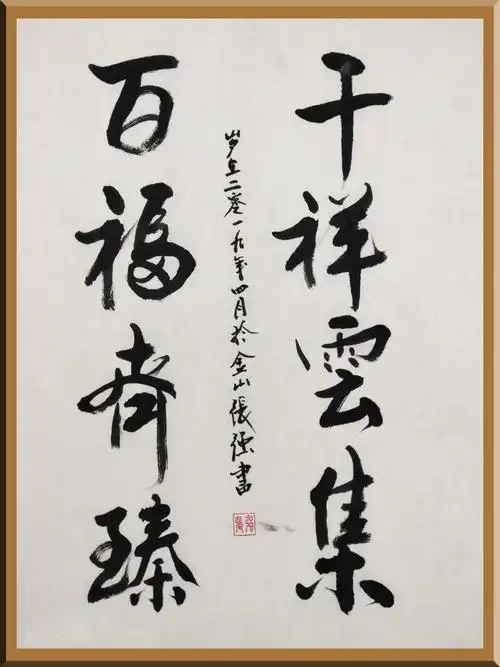 千祥雲集
百福齊臻
岁在二零一九年四月於金山張强書